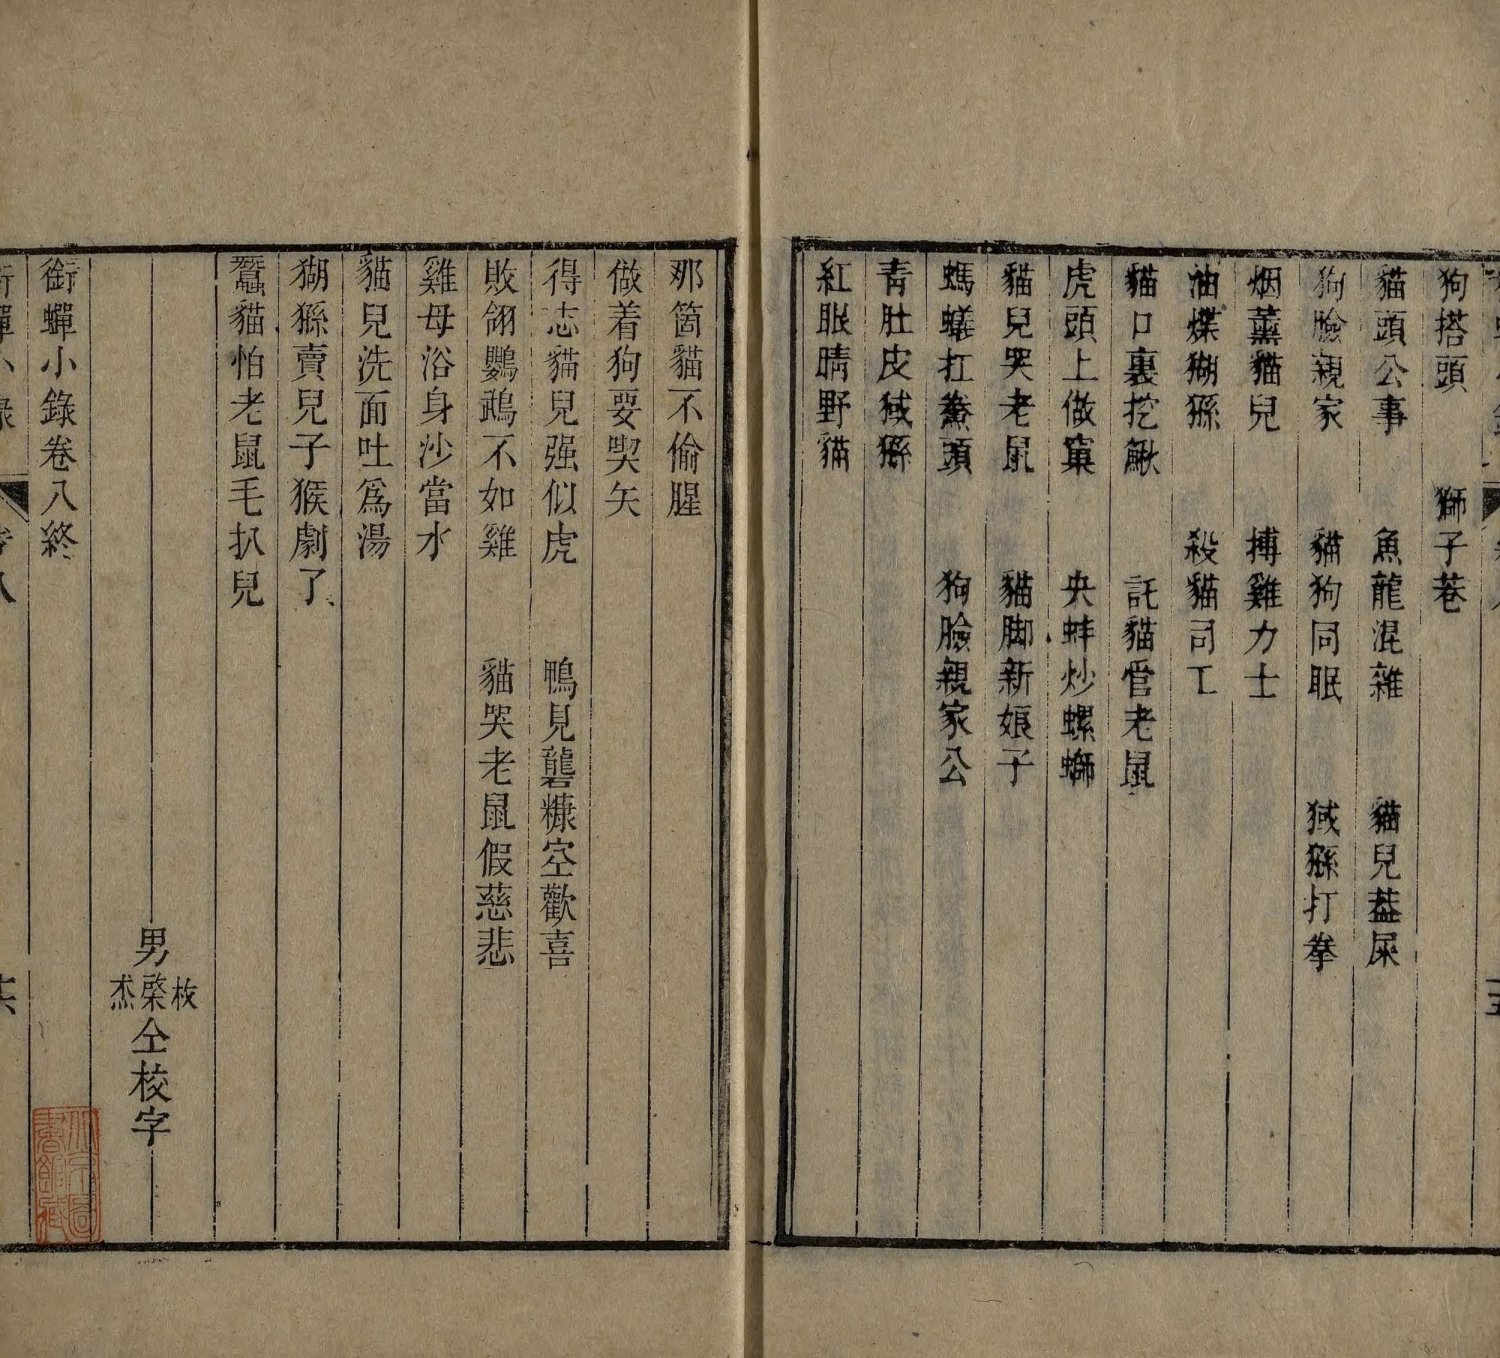 狗搭頭　獅子巷
貓頭公事　魚龍混雜　貓兒葢屎
狗臉親家　貓狗同眠　狨猻打拳
烟薰貓兒　搏雞力士
油煠猢猻　殺貓司工
貓口裏挖鰍　託貓管老鼠
虎頭上做窠　央蚌炒螺螄
貓兒哭老鼠　貓脚新娘子
螞蟻扛鮝頭　狗臉親家公
青肚皮狨猻
紅眼睛野貓
那箇貓不偷腥
做着狗要喫矢
得志貓兒强似虎　鴨見礱糠空歡喜
敗翎鸚鵡不如雞　貓哭老鼠假慈悲
雞母浴身沙當水
貓兒洗面吐爲湯
猢猻賣兒子猴劇了
蠶貓怕老鼠毛扒兒
男
枚
棨
杰
仝校字
銜蟬小錄卷八終